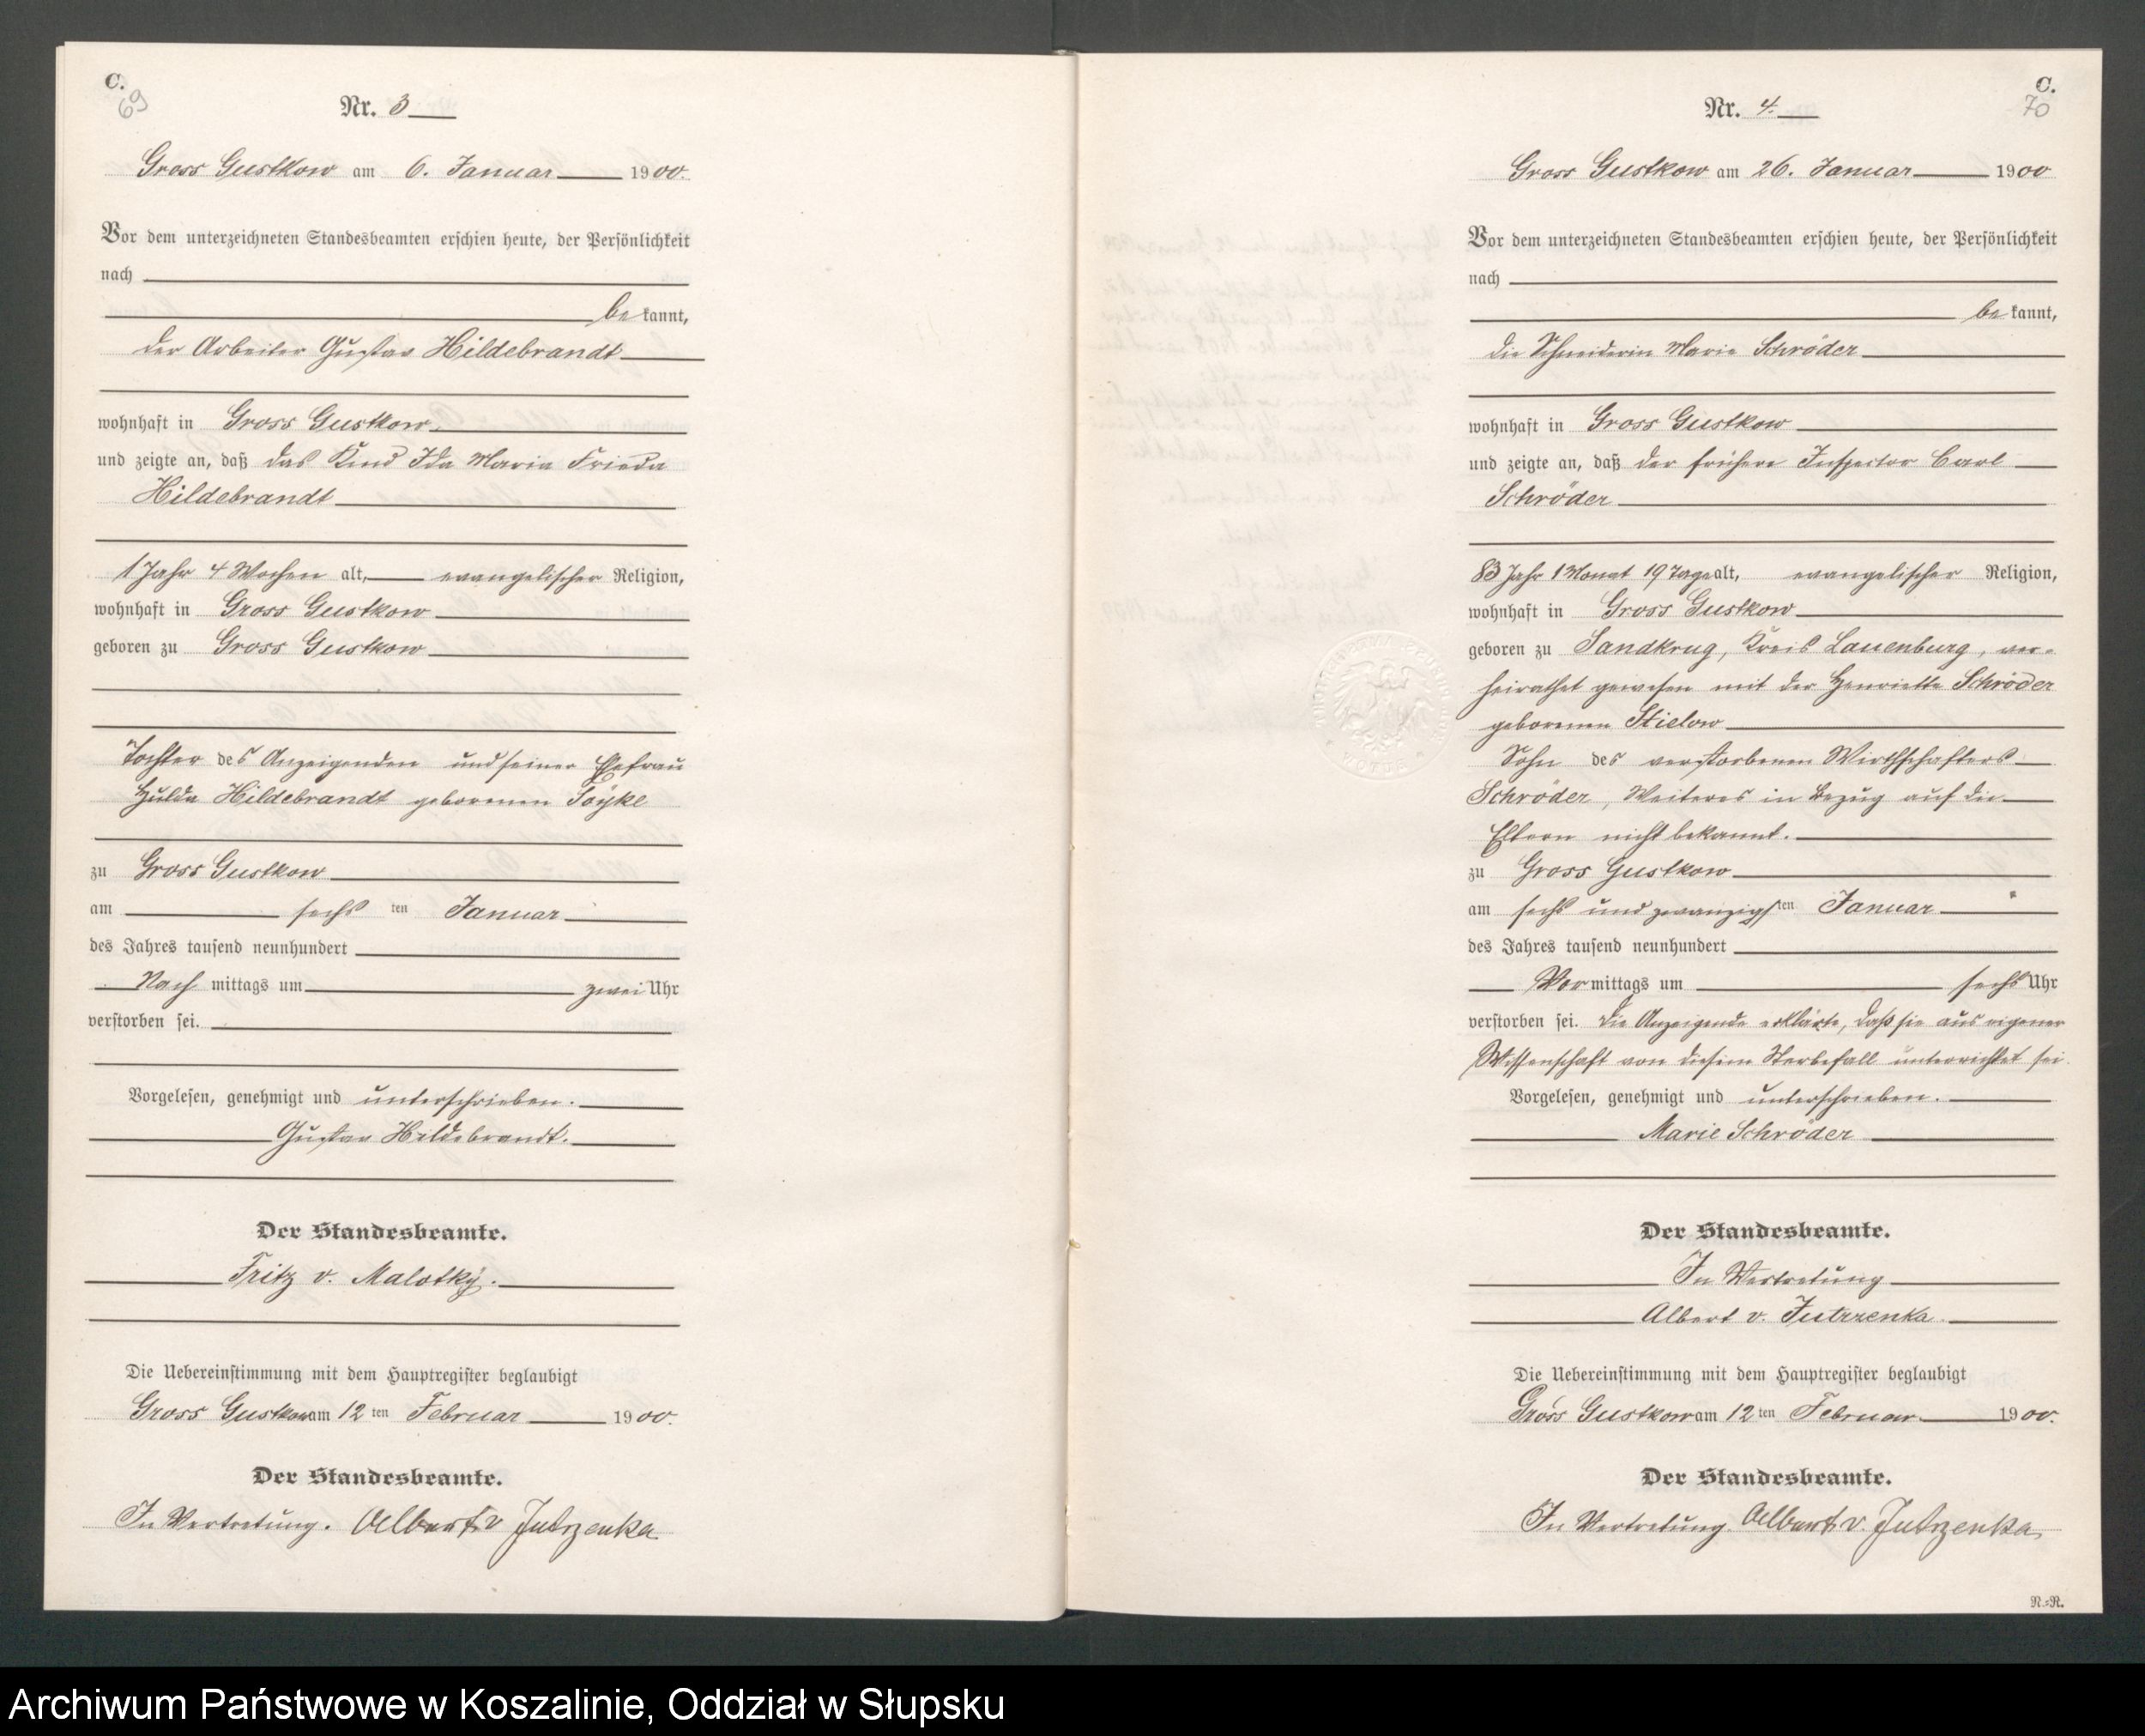 C.
69
Nr. 3
Gross Gustkow am 6. Januar 1900.
Vor dem unterzeichneten Standesbeamten erschien heute, der Persönlichkeit
nach
be kannt,
der Arbeiter Gustav Hildebrandt
wohnhaft in Gross Gustkow
und zeigte an, daß das Kind Ida Maria Frieda
Hildebrandt
1 Jahr 4 Wochen alt, evangelischer Religion,
wohnhaft in Gross Gustkow
geboren zu Gross Gustkow
Tochter des Anzeigenden und seiner Ehefrau
Hulda Hildebrandt geborenen
zu Gross Gustkow
am sechs ten Januar
des Jahres tausend neunhundert
Nach mittags um zwei Uhr
verstorben sei.
Vorgelesen, genehmigt und unterschrieben.
Gustav Hildebrandt.
Der Standesbeamte.
Fritz v. Malotky.
Die Uebereinstimmung mit dem Hauptregister beglaubigt
Gross Gustkow am 12 ten Februar 1900.
Der Standesbeamte.
In Vertretung. Albert v Jutrzenka
C.
70
Nr. 4.
Gross Gustkow am 26. Januar 1900
Vor dem unterzeichneten Standesbeamten erschien heute, der Persönlichkeit
nach
be kannt,
die Schneiderin Marie Schröder
wohnhaft in Gross Gustkow
und zeigte an, daß der frühere Inspector Carl
Schröder
83 Jahr 1 Monat 19 Tage alt, evangelischer Religion,
wohnhaft in Gross Gustkow
geboren zu Sandkrug, Kreis Lauenburg, ver-
heirathet gewesen mit der Henriette Schröder
geborenen Stielow
Sohn des verstorbenen Wirthschafters
Schröder, Weiteres in Bezug auf die
Eltern nicht bekannt.
zu Gross Gustkow
am sechs und zwanzigsten Januar
des Jahres tausend neunhundert
Vor mittags um sechs Uhr
verstorben sei. Die Anzeigende erklärte, daß sie aus eigener
Wissenschaft von diesem Sterbefall unterrichtet sei.
Vorgelesen, genehmigt und unterschrieben.
Marie Schröder
Der Standesbeamte.
In Vertretung
Albert v. Jutrzenka.
Die Uebereinstimmung mit dem Hauptregister beglaubigt
Gross Gustkow am 12 ten Februar 1900.
Der Standesbeamte.
In Vertretung. Albert v. Jutrzenka
N.=R.
Archiwum Państwowe w Koszalinie, Oddział w Słupsku